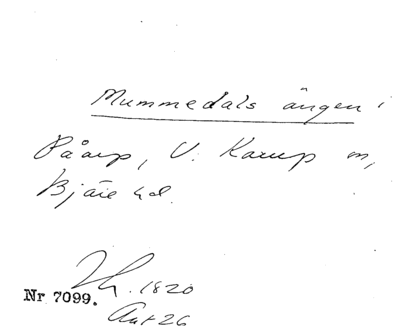 Mummedals ängen i
Påarp, V. Karup sn,
Bjäre hd.
Th. 1820
Nr 7099.
Akt 26